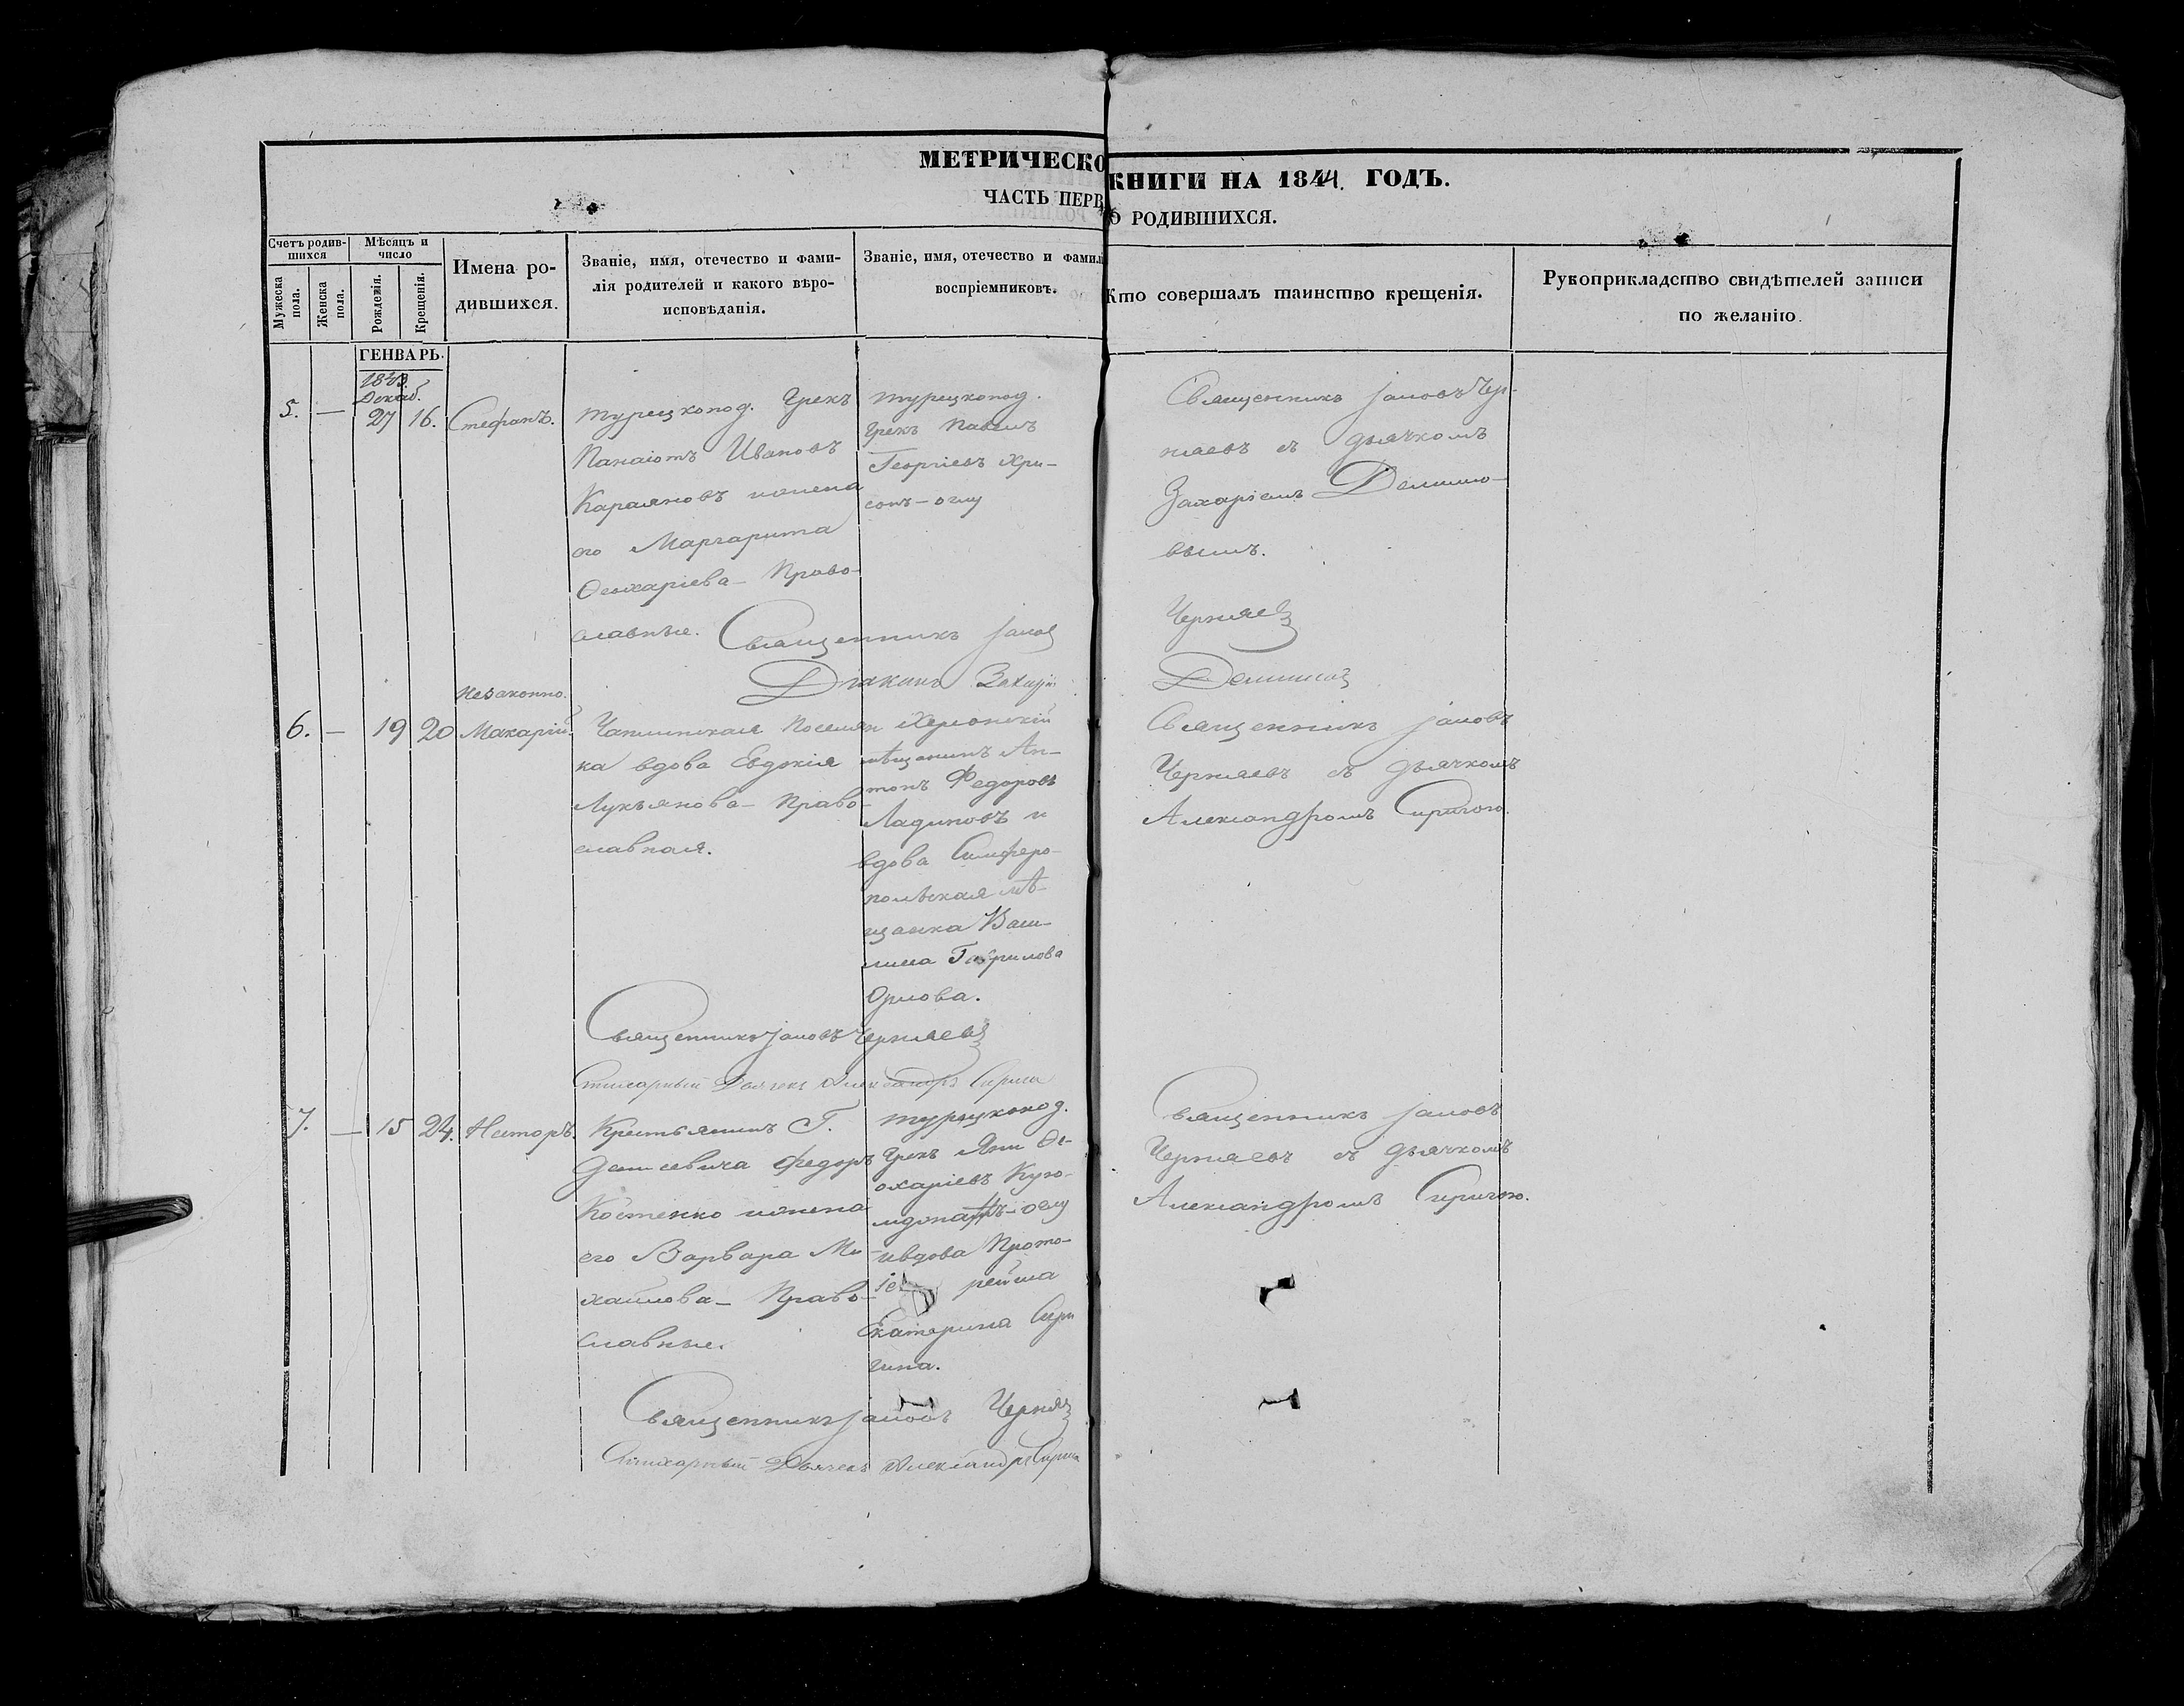 МЕТРИЧЕСКО КНИГИ НА 1844. ГОДЪ.
ЧАСТЬ ПЕРВ О РОДИВШИХСЯ.
Счетъ родив-
шихся
Мужеска
пола.
Женска
пола.
Мѣсяцъ и
число
Рожденія.
Крещенія.
Имена ро-
дившихся.
Званіе, имя, отечество и фами-
лія родителей и какого вѣро-
исповѣданія.
Званіе, имя, отечество и фамил
воспріемниковъ.
Кто совершалъ таинство крещенія.
Рукоприкладство свидѣтелей записи
по желанію.
ГЕНВАРЬ.
1843.
Декаб.
5. — 27 16. Стефанъ.
Турецкопод. Грекъ
Панаіотъ Ивановъ
Караяновъ ижена
его Маргарита
Право-
славные.
турецкопод.
Грекъ Павелъ
Георгіевъ Хри-
Священникъ Іаковъ Чер-
няевъ съ дьячкомъ
Захаріемъ
вымъ.
Священникъ Іаков Черняев
Захарій
незаконно.
6. — 19 20 Макарій.
Поселян
ка вдова Евдокія
Лукьянова — Право-
славная.
Херсонскій
мѣщанинъ Ан-
тонъ Федоровъ
Ладиновъ и
вдова Симферо-
польская мѣ-
щанка Васи-
лиса Гаврилова
Орлова.
Священникъ Іаковъ
Черняевъ съ дьячкомъ
Александромъ
Священникъ Іаковъ Черняевъ
Стихарный Дьячекъ Александръ
7. — 15 24. Несторъ.
Крестьянинъ Г.
Федоръ
Костенко ижена
его Варвара Ми-
хайлова — Право-
славные.
турецкопод.
Грекъ Яни Ѳе-
охаріевъ
ивдова Прото-
іе рейша
Екатерина Сири
гина.
Священникъ Іаковъ
Черняевъ съ дьячкомъ
Александромъ
Священникъ Іаковъ Черняев
Стихарный Дьячекъ Александръ